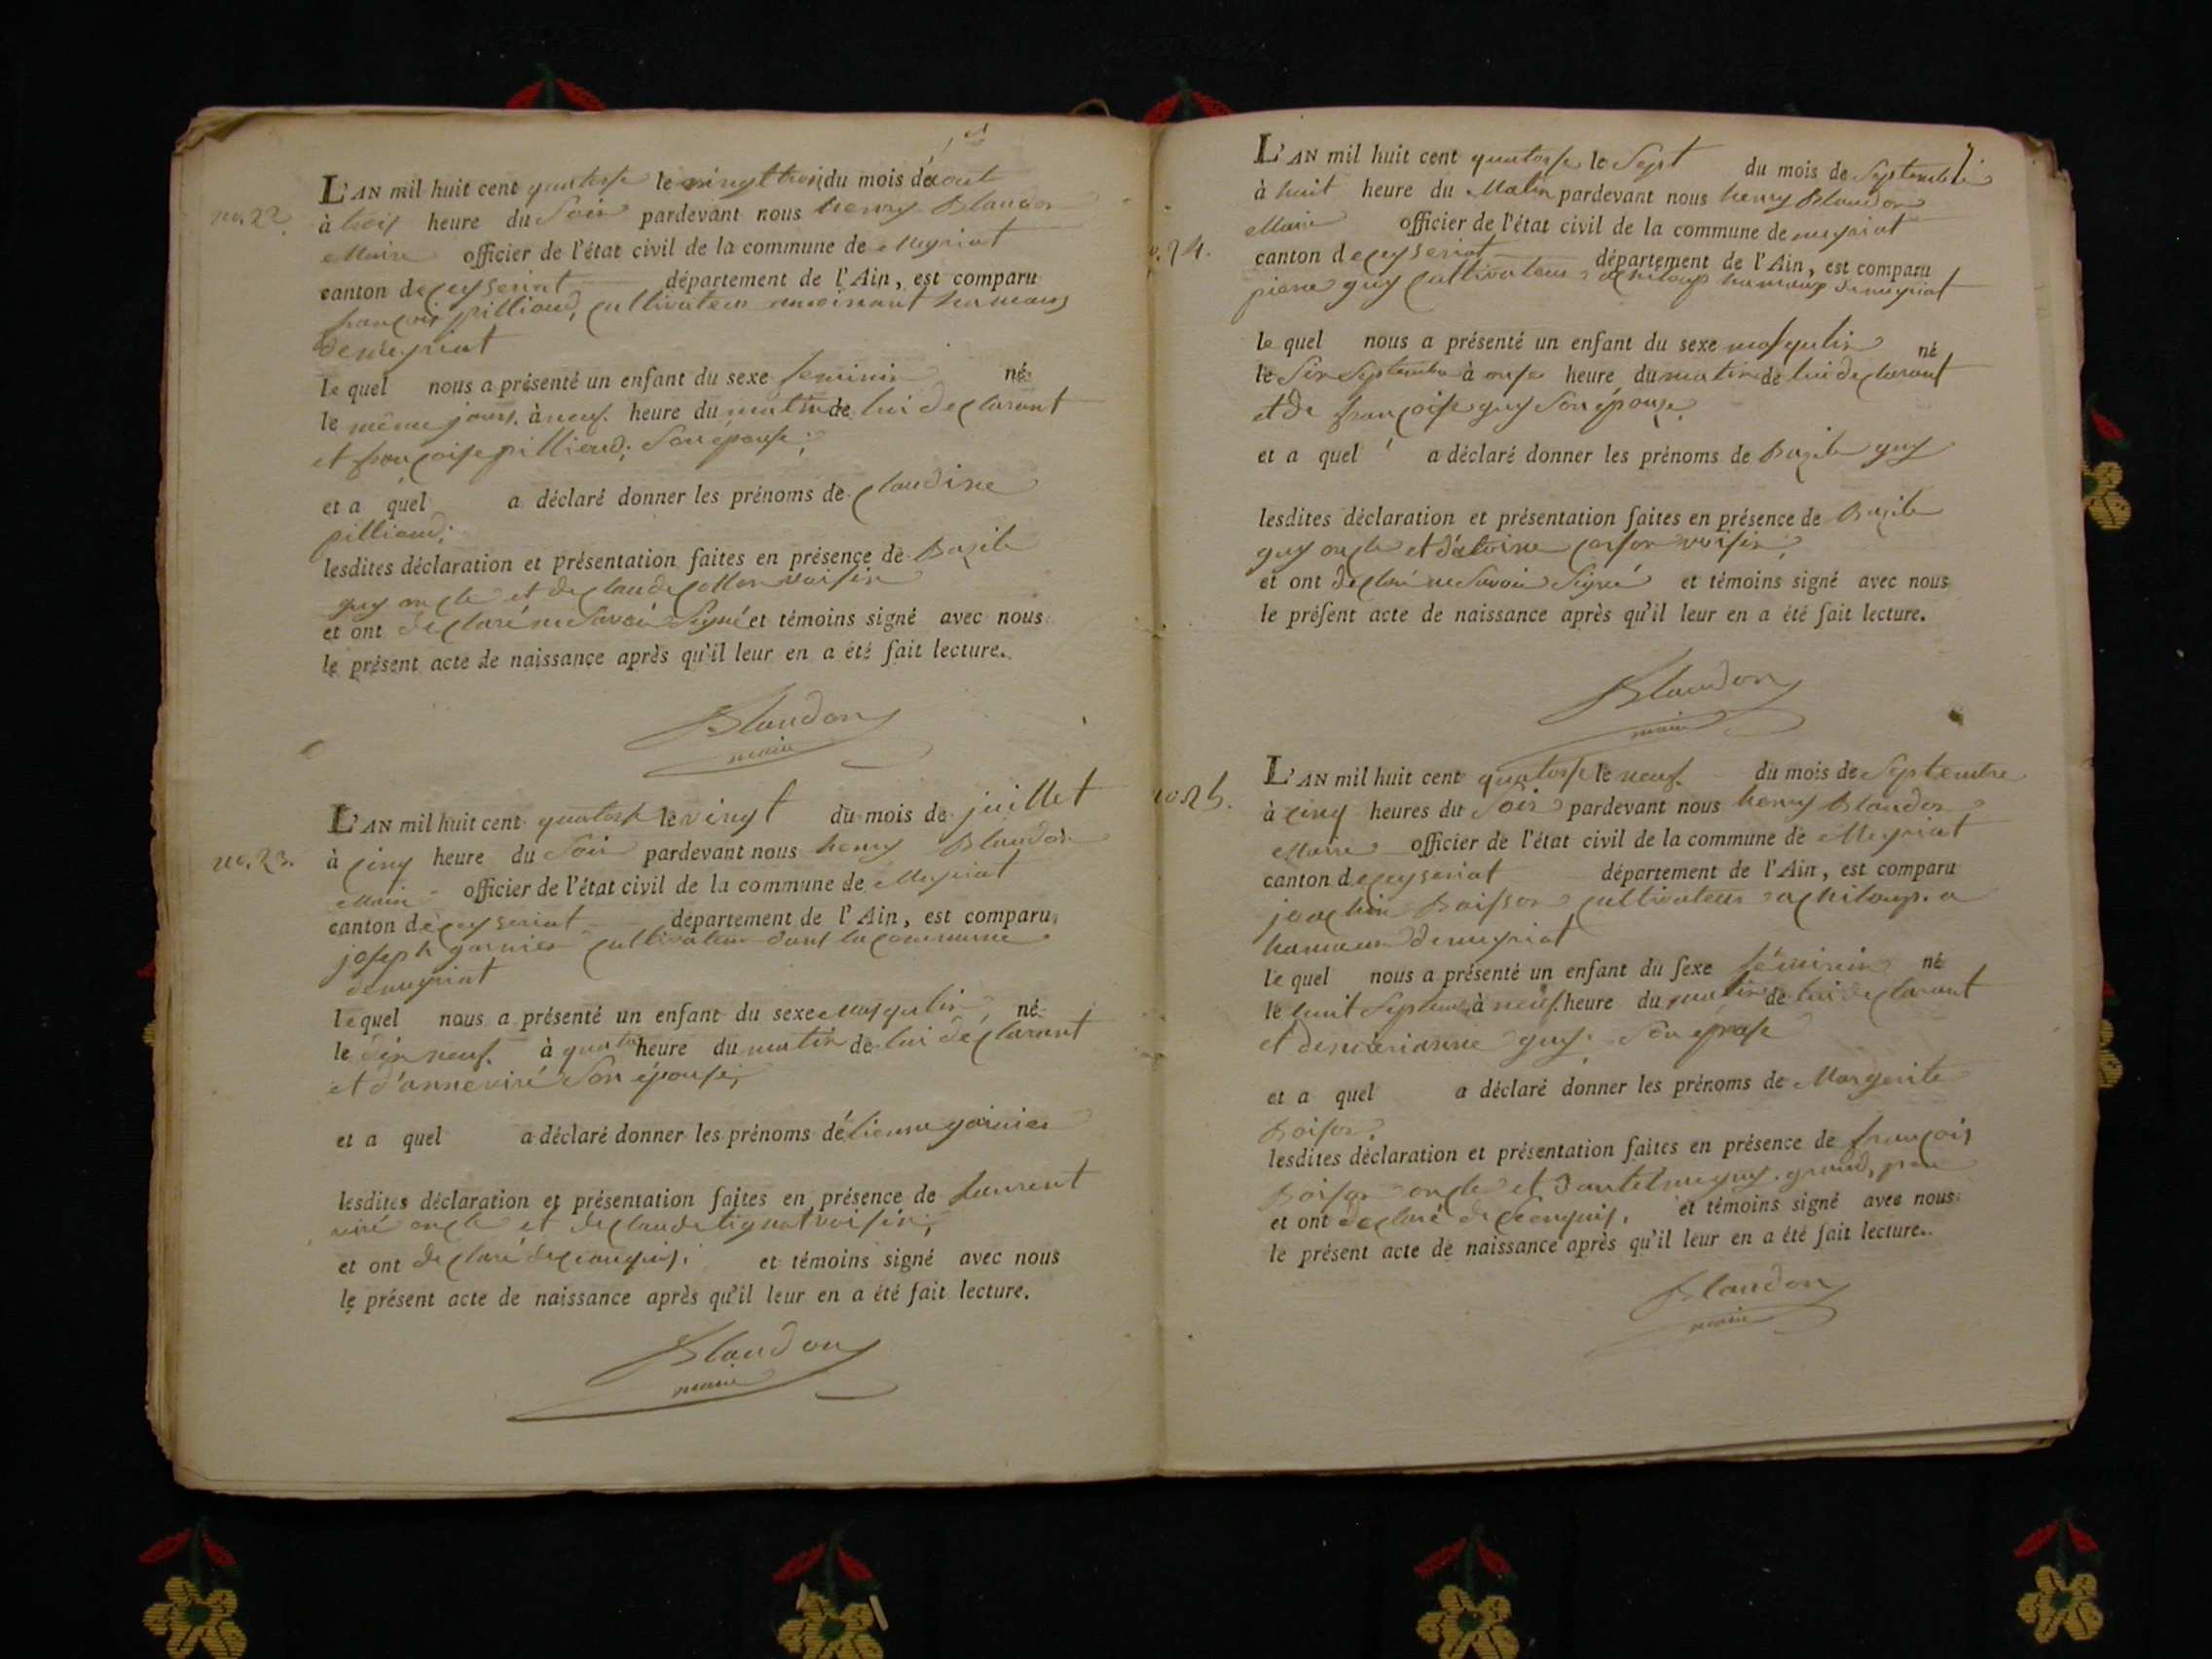 no. 22.
L'AN mil huit cent quatorse le vingt trois du mois d'aout
à trois heure du Soir pardevant nous henry Blandon
Maire officier de l'état civil de la commune de Meyriat
canton de ceyseriat département de l'Ain, est comparu
françois pilliond, cultivateur hameaux
de meyriat
le quel nous a présenté un enfant du sexe feminin né
le même jours. à neuf. heure du matin de lui declarant
et françoise pilliond; Son épouse;
et a quel a déclaré donner les prénoms de claudine
pilliond;
lesdites déclaration et présentation faites en présence de Bazile
guy oncle et de claude collon voisin
et ont declaré ne Savoir Signé et témoins signé avec nous
le présent acte de naissance après qu'il leur en a été fait lecture.
Blandon
maire
no. 23.
L'AN mil huit cent quatorse le vingt du mois de juillet
à cinq heure du Soir pardevant nous henry Blandon
Maire officier de l'état civil de la commune de Meyriat
canton de ceyseriat département de l'Ain, est comparu
joseph garnier cultivateur dans la commune
de meyriat
le quel nous a présenté un enfant du sexe masqulin né
le dix neuf. à quatre heure du matin de lui declarant
et d'anne viré Son épouse;
et a quel a déclaré donner les prénoms d'étienne garnier
lesdites déclaration et présentation faites en présence de laurent
viré oncle et de claude tignat voisin;
et ont declaré de ce enquis. et témoins signé avec nous
le présent acte de naissance après qu'il leur en a été fait lecture.
Blandon
maire
7
L'AN mil huit cent quatorse le Sept du mois de Septembre
à huit heure du Matin pardevant nous henry Blandon
Maire officier de l'état civil de la commune de meyriat
24.
canton de ceyseriat département de l'Ain, est comparu
pierre guy cultivateur a chiloup hameaux de meyriat
le quel nous a présenté un enfant du sexe masqulin né
le Six Septembre à onse heure du matin de lui declarant
et de françoise guy Son épouse.
et a quel a déclaré donner les prénoms de Bazile guy
lesdites déclaration et présentation faites en présence de Bazile
guy oncle et d'atoine voisin;
et ont declaré ne Savoir Signé et témoins signé avec nous
le présent acte de naissance après qu'il leur en a été fait lecture.
Blandon
maire
no 25.
L'AN mil huit cent quatorse le neuf. du mois de Septembre
à cinq heures du Soir pardevant nous henry Blandon
Maire officier de l'état civil de la commune de Meyriat
canton de ceyseriat département de l'Ain, est comparu
joachin Boisson cultivateur a chiloup. a
hameau de meyriat
le quel nous a présenté un enfant du sexe féminin né
le huit Septembre à neuf. heure du matin de lui declarant
et de marianne guy. Son epouse
et a quel a déclaré donner les prénoms de Margerite
Boison.
lesdites déclaration et présentation faites en présence de françois
Boison oncle et d'antelme guy. grand, pere
et ont declaré de ce enquis. et témoins signé avec nous
le présent acte de naissance après qu'il leur en a été fait lecture.
Blandon
maire